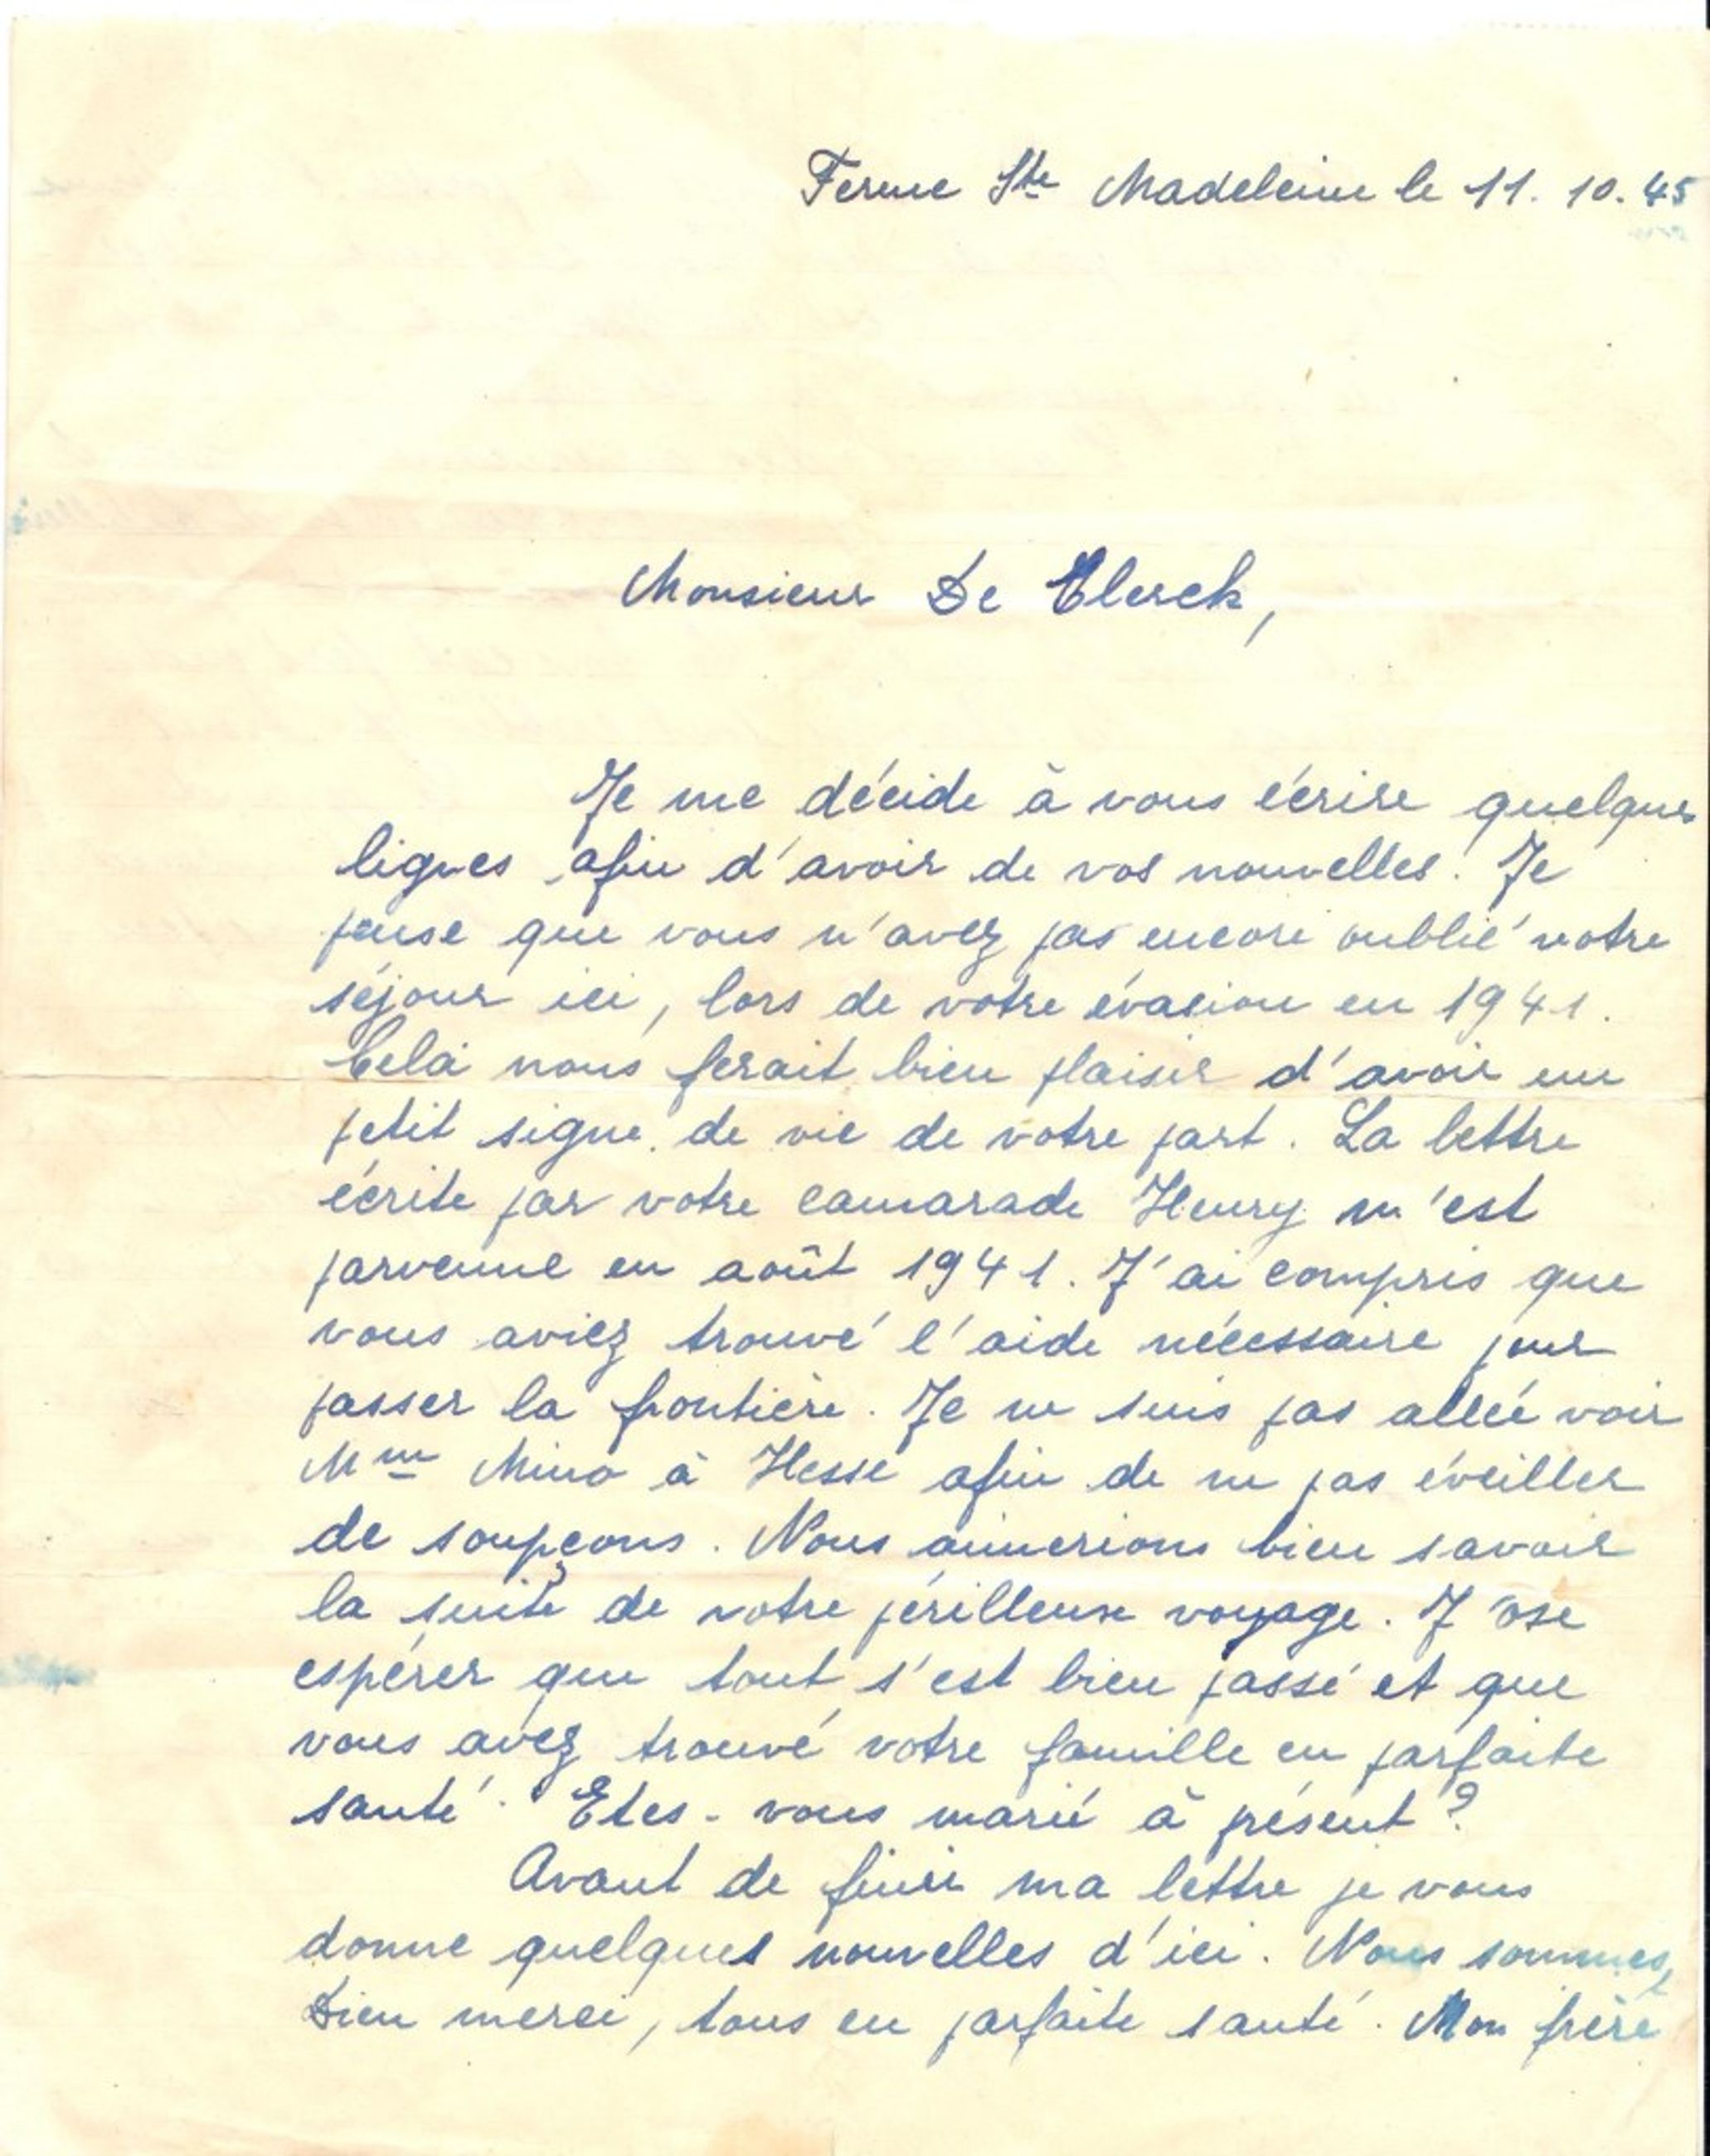 Ferme Ste Madeleine le 11. 10. 45
Monsieur De Clerck,
Je me décide à vous écrire quelques
lignes afin d'avoir de vos nouvelles. Je
pense que vous n'avez pas encore oublié votre
séjour ici, lors de votre évasion en 1941.
Celà nous ferait bien plaisir d'avoir un
petit signe de vie de votre part. La lettre
écrite par votre camarade Henry m'est
parvenue en août 1941. J'ai compris que
vous aviez trouvé l'aide nécessaire pour
passer la frontière. Je ne suis pas allée voir
Mme Mino à Hesse afin de ne pas éveiller
de soupçons. Nous aimerions bien savoir
la suite de votre périlleuse voyage. J'ose
espérer que tout s'est bien passé et que
vous avez trouvé votre famille en parfaite
santé. Etes-vous marié à présent?
Avant de finir ma lettre je vous
donne quelques nouvelles d'ici. Nous sommes,
Dieu merci, tous en parfaite santé. Mon frère